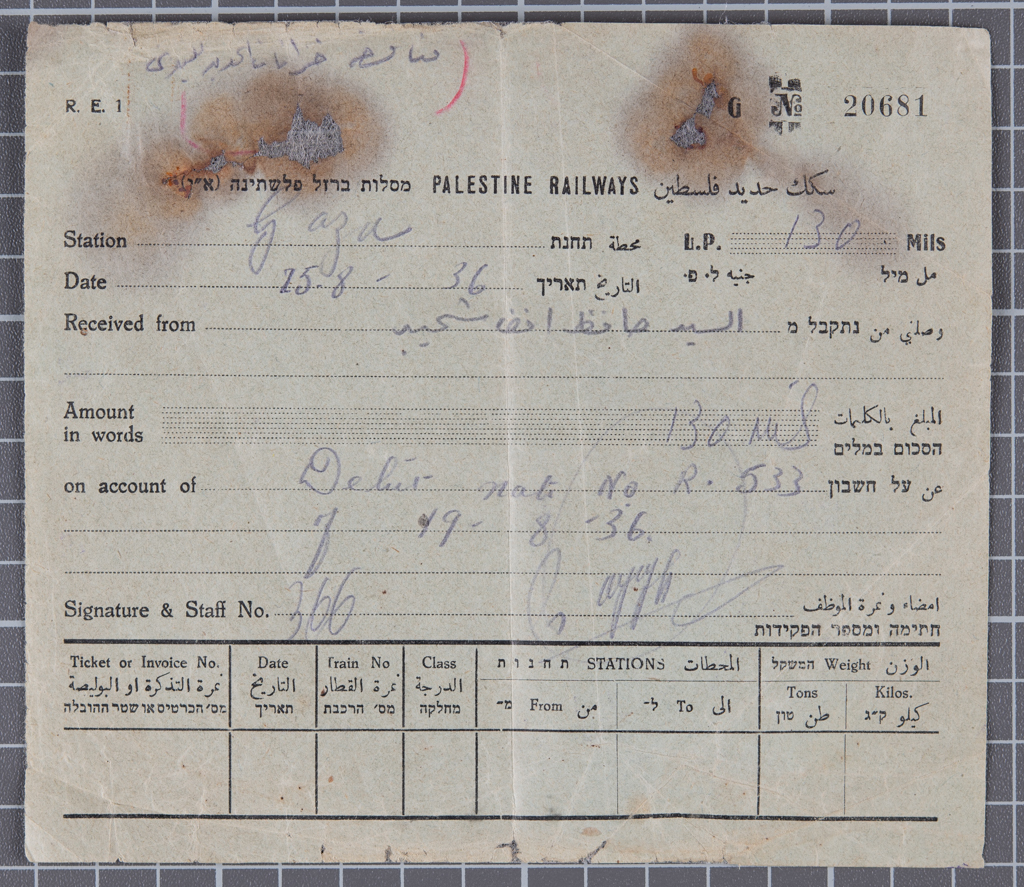 R. E. 1 G No 20681
מסלות ברזל פלשתינה (א״י) PALESTINE RAILWAYS سكك حديد فلسطين
Station Gaza محطة תחנת L.P. 130 Mils
Date 15-8-36 التاريخ תאריך جنيه ל. פ. مل מיל
Received from السيد حافظ افندي נתקבל מ وصلني من
Amount in words 130 mls المبلغ بالكلمات
הסכום במלים
on account of Debit note No R. 533 עַל חשבון عن
of 19-8-36.
Signature & Staff No. 366 امضاء و نمرة الموظف
חתימה ומספר הפקידות
Ticket or Invoice No. Date Train No Class תחנות STATIONS المحطات המשקל Weight الوزن
نمرة التذكرة او البوليصة التاريخ نمرة القطار الدرجة מ־ From من ל־ To الى Tons Kilos.
מס׳ הכרטיס או שטר ההובלה תאריך מס׳ הרכבת מחלקה טון طن ק״ג كيلو